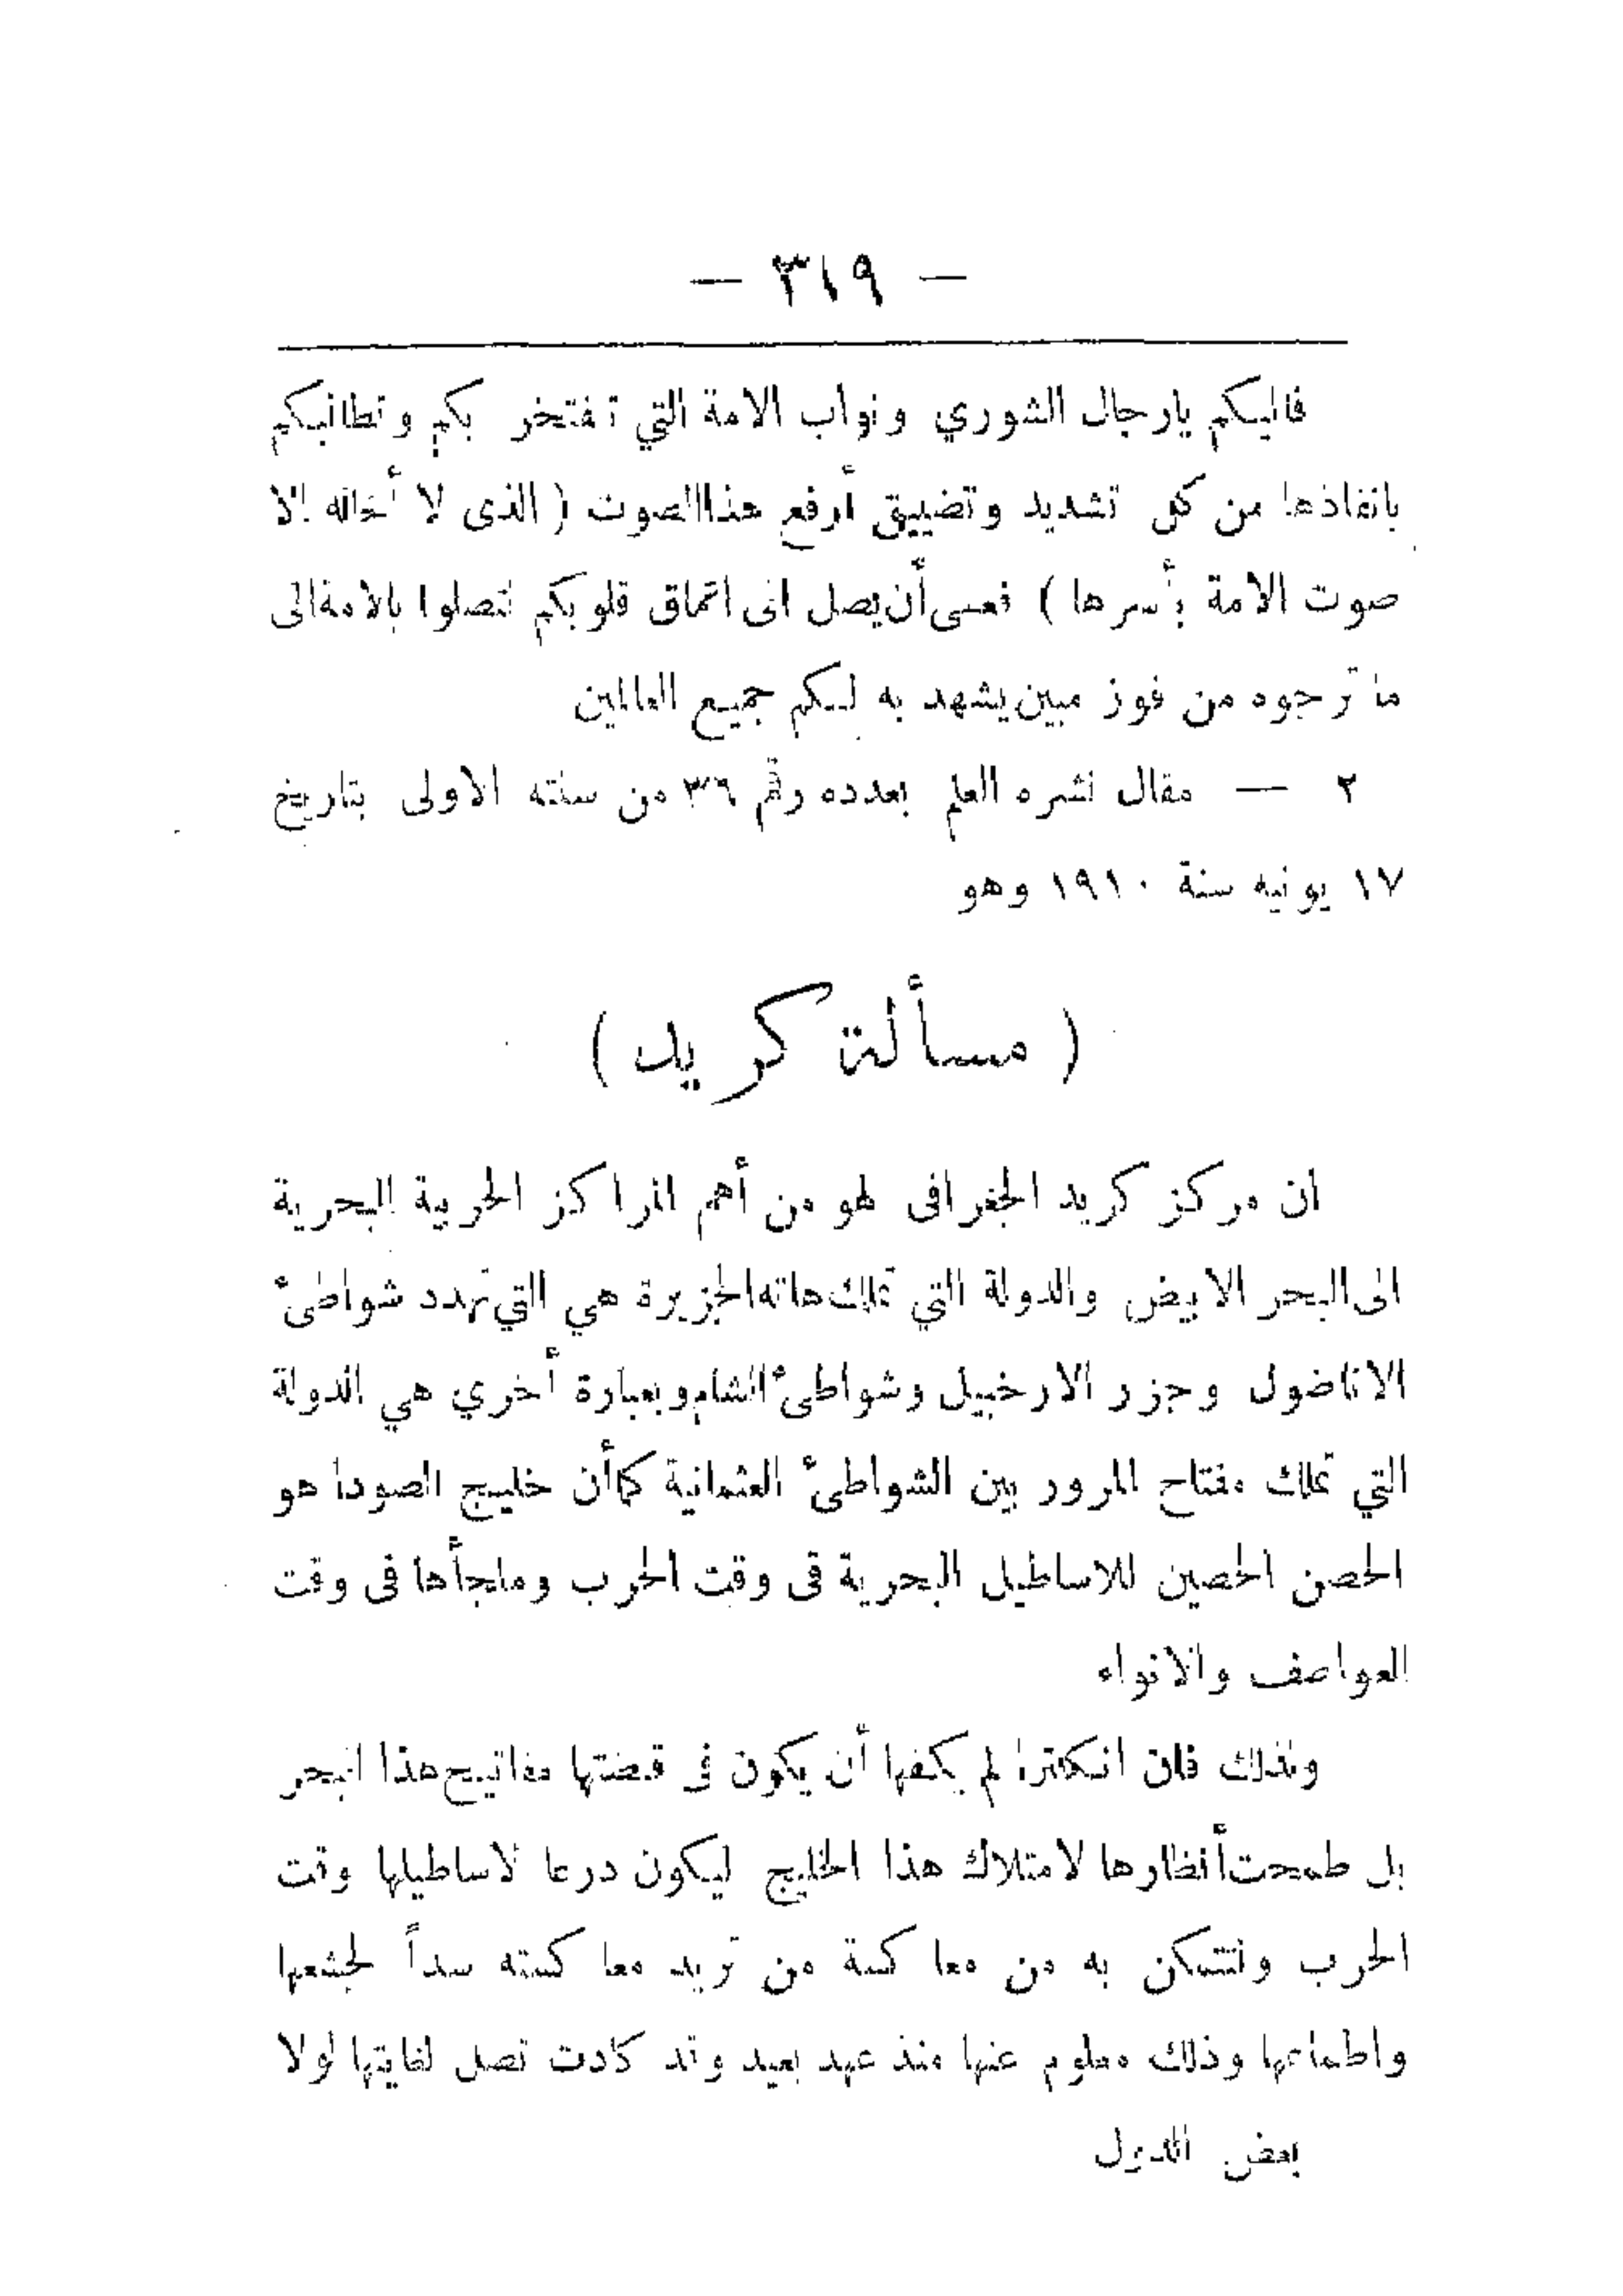 — ٣١٩ —
فاليكم يارجال الشوري ونواب الامة التي تفتخر بكم وتطالبكم
بانقاذها من كل تشديد وتضييق أرفع هذا الصوت ( الذى لا أخاله الا
صوت الامة بأسرها ) فعسى أن يصل الى اعماق قلوبكم لتصلوا بالامة الى
ما ترجوه من فوز مبين يشهد به لكم جميع العالمين
٢ — مقال نشره العلم بعدده رقم ٣٦ من سنته الاولى بتاريخ
١٧ يونيه سنة ١٩١٠ وهو
( مسألة كريد )
ان مركز كريد الجغرافى لهو من أهم المراكز الحربية البحرية
الى البحر الابيض والدولة التي تملك هاته الجزيرة هي التي تهدد شواطئ
الاناضول وجزر الارخبيل وشواطئ الشام وبعبارة أخري هي الدولة
التي تملك مفتاح المرور بين الشواطئ العثمانية كما أن خليج الصودا هو
الحصن الحصين للاساطيل البحرية فى وقت الحرب وملجأها فى وقت
العواصف والانواء
ولذلك فان انكلترا لم يكفها أن يكون فى قبضتها مفاتيح هذا البحر
بل طمحت أنظارها لامتلاك هذا الخليج ليكون درعا لاساطيلها وقت
الحرب ولتتمكن به من معاكسة من تريد معاكسته سداً لجشعها
واطماعها وذلك معلوم عنها منذ عهد بعيد وقد كادت تصل لغايتها لولا
بعض الدول